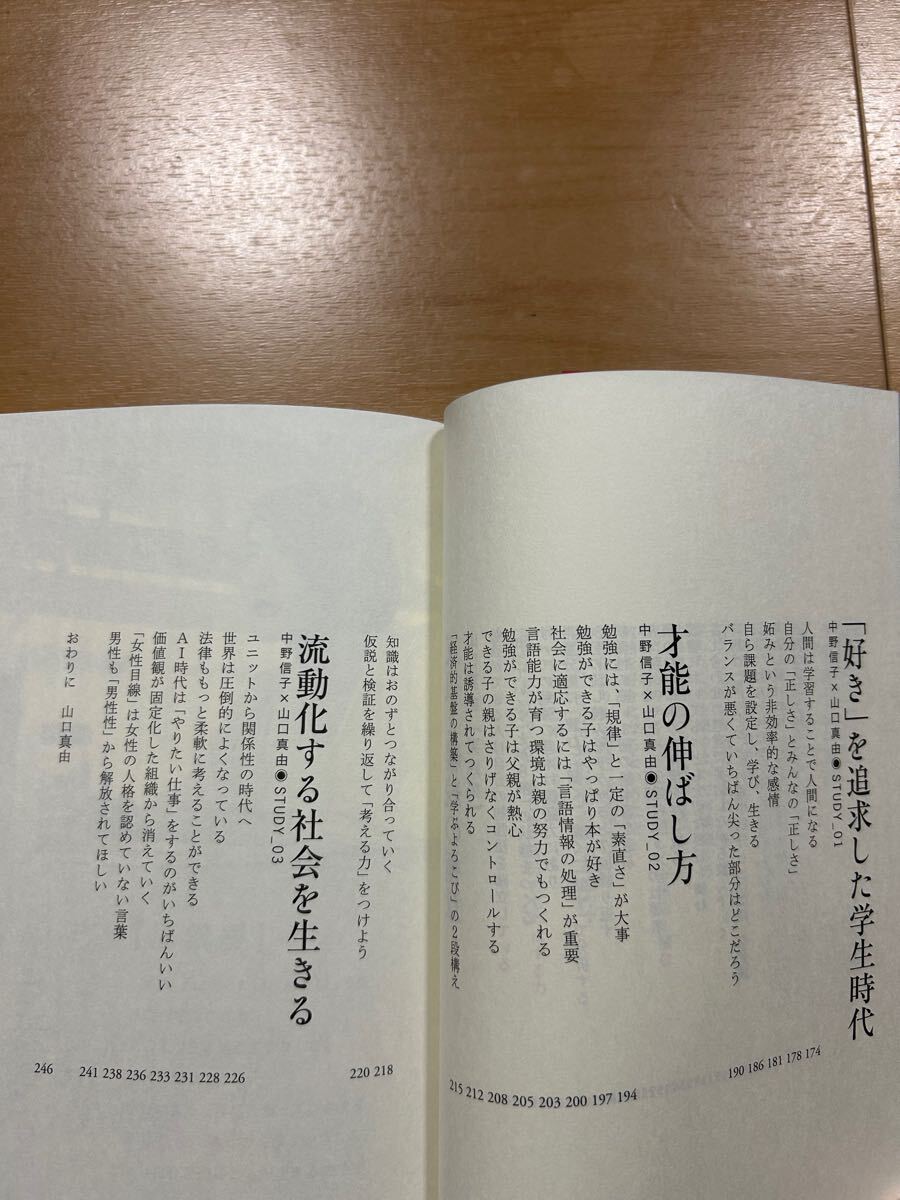 「好き」を追求した学生時代
中野信子×山口真由◉STUDY_01
人間は学習することで人間になる 174
自分の「正しさ」とみんなの「正しさ」 178
妬みという非効率的な感情 181
自ら課題を設定し、学び、生きる 186
バランスが悪くていちばん尖った部分はどこだろう 190
才能の伸ばし方
中野信子×山口真由◉STUDY_02
勉強には、「規律」と一定の「素直さ」が大事 194
勉強ができる子はやっぱり本が好き 197
社会に適応するには「言語情報の処理」が重要 200
言語能力が育つ環境は親の努力でもつくれる 203
勉強ができる子は父親が熱心 205
できる子の親はさりげなくコントロールする 208
才能は誘導されてつくられる 212
「経済的基盤の構築」と「学ぶよろこび」の2段構え 215
知識はおのずとつながり合っていく 218
仮説と検証を繰り返して「考える力」をつけよう 220
流動化する社会を生きる
中野信子×山口真由◉STUDY_03
ユニットから関係性の時代へ 226
世界は圧倒的によくなっている 228
法律ももっと柔軟に考えることができる 231
AI時代は「やりたい仕事」をするのがいちばんいい 233
価値観が固定化した組織から消えていく 236
「女性目線」は女性の人格を認めていない言葉 238
男性も「男性性」から解放されてほしい 241
おわりに 山口真由 246